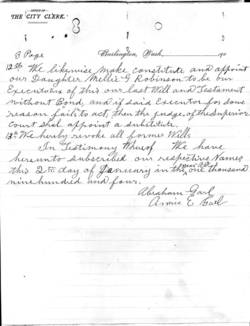 OFFICE OF
THE CITY CLERK.
3 Page Burlington, Wash., 190
12th We likewise make constitute and appoint
our Daughter Nellie G Robinson to be our
Executions of this our last Will and Testament
without Bond, and if said Executor for some
reason fails to act, then the judge of the Superior
Court shal appoint a substitute.
13th We hereby revoke all former Wills.
In Testimony Whereof We have
hereunto subscribed our respective Names
this 2th day of January in the one thousand
nine hundred and four.
Abraham Garl
Annie E Garl